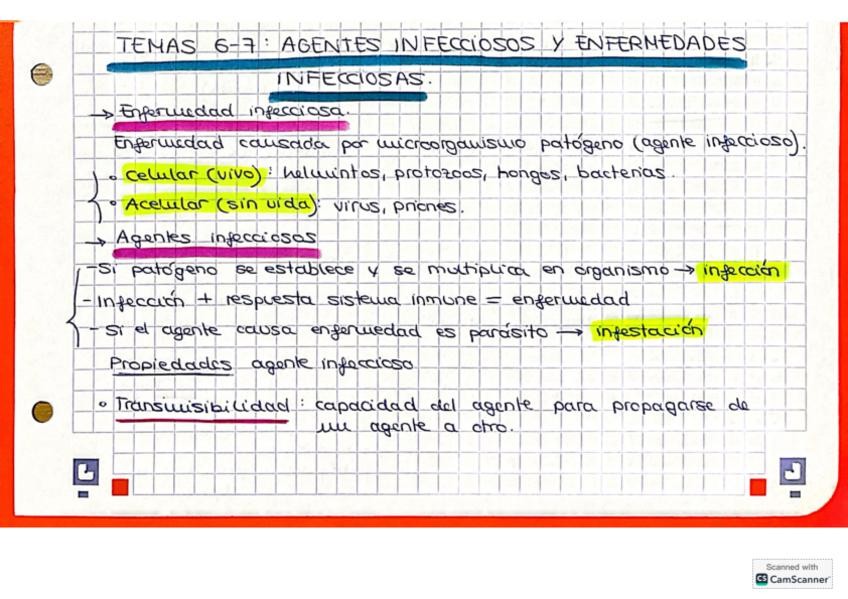 TEMAS 6-7: AGENTES INFECCIOSOS Y ENFERMEDADES
INFECCIOSAS.
→ Enfermedad infecciosa.
Enfermedad causada por microorganismo patógeno (agente infeccioso).
• Celular (vivo): helmintos, protozoos, hongos, bacterias.
• Acelular (sin vida): virus, priones.
→ Agentes infecciosos
- Si patógeno se establece y se multiplica en organismo → infección
- Infección + respuesta sistema inmune = enfermedad
- Si el agente causa enfermedad es parásito → infestación
Propiedades agente infeccioso
• Transmisibilidad: capacidad del agente para propagarse de
un agente a otro.
Scanned with
CS CamScanner